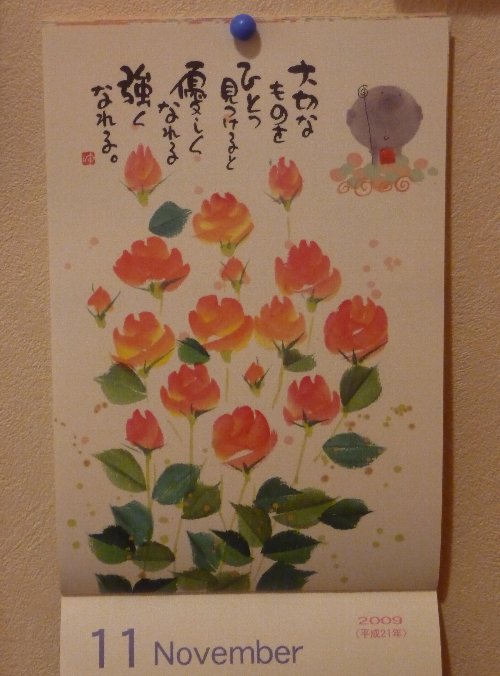 大切な
ものを
ひとつ
見つけると
優しく
なれる
強く
なれる。
2009
(平成21年)
11 November